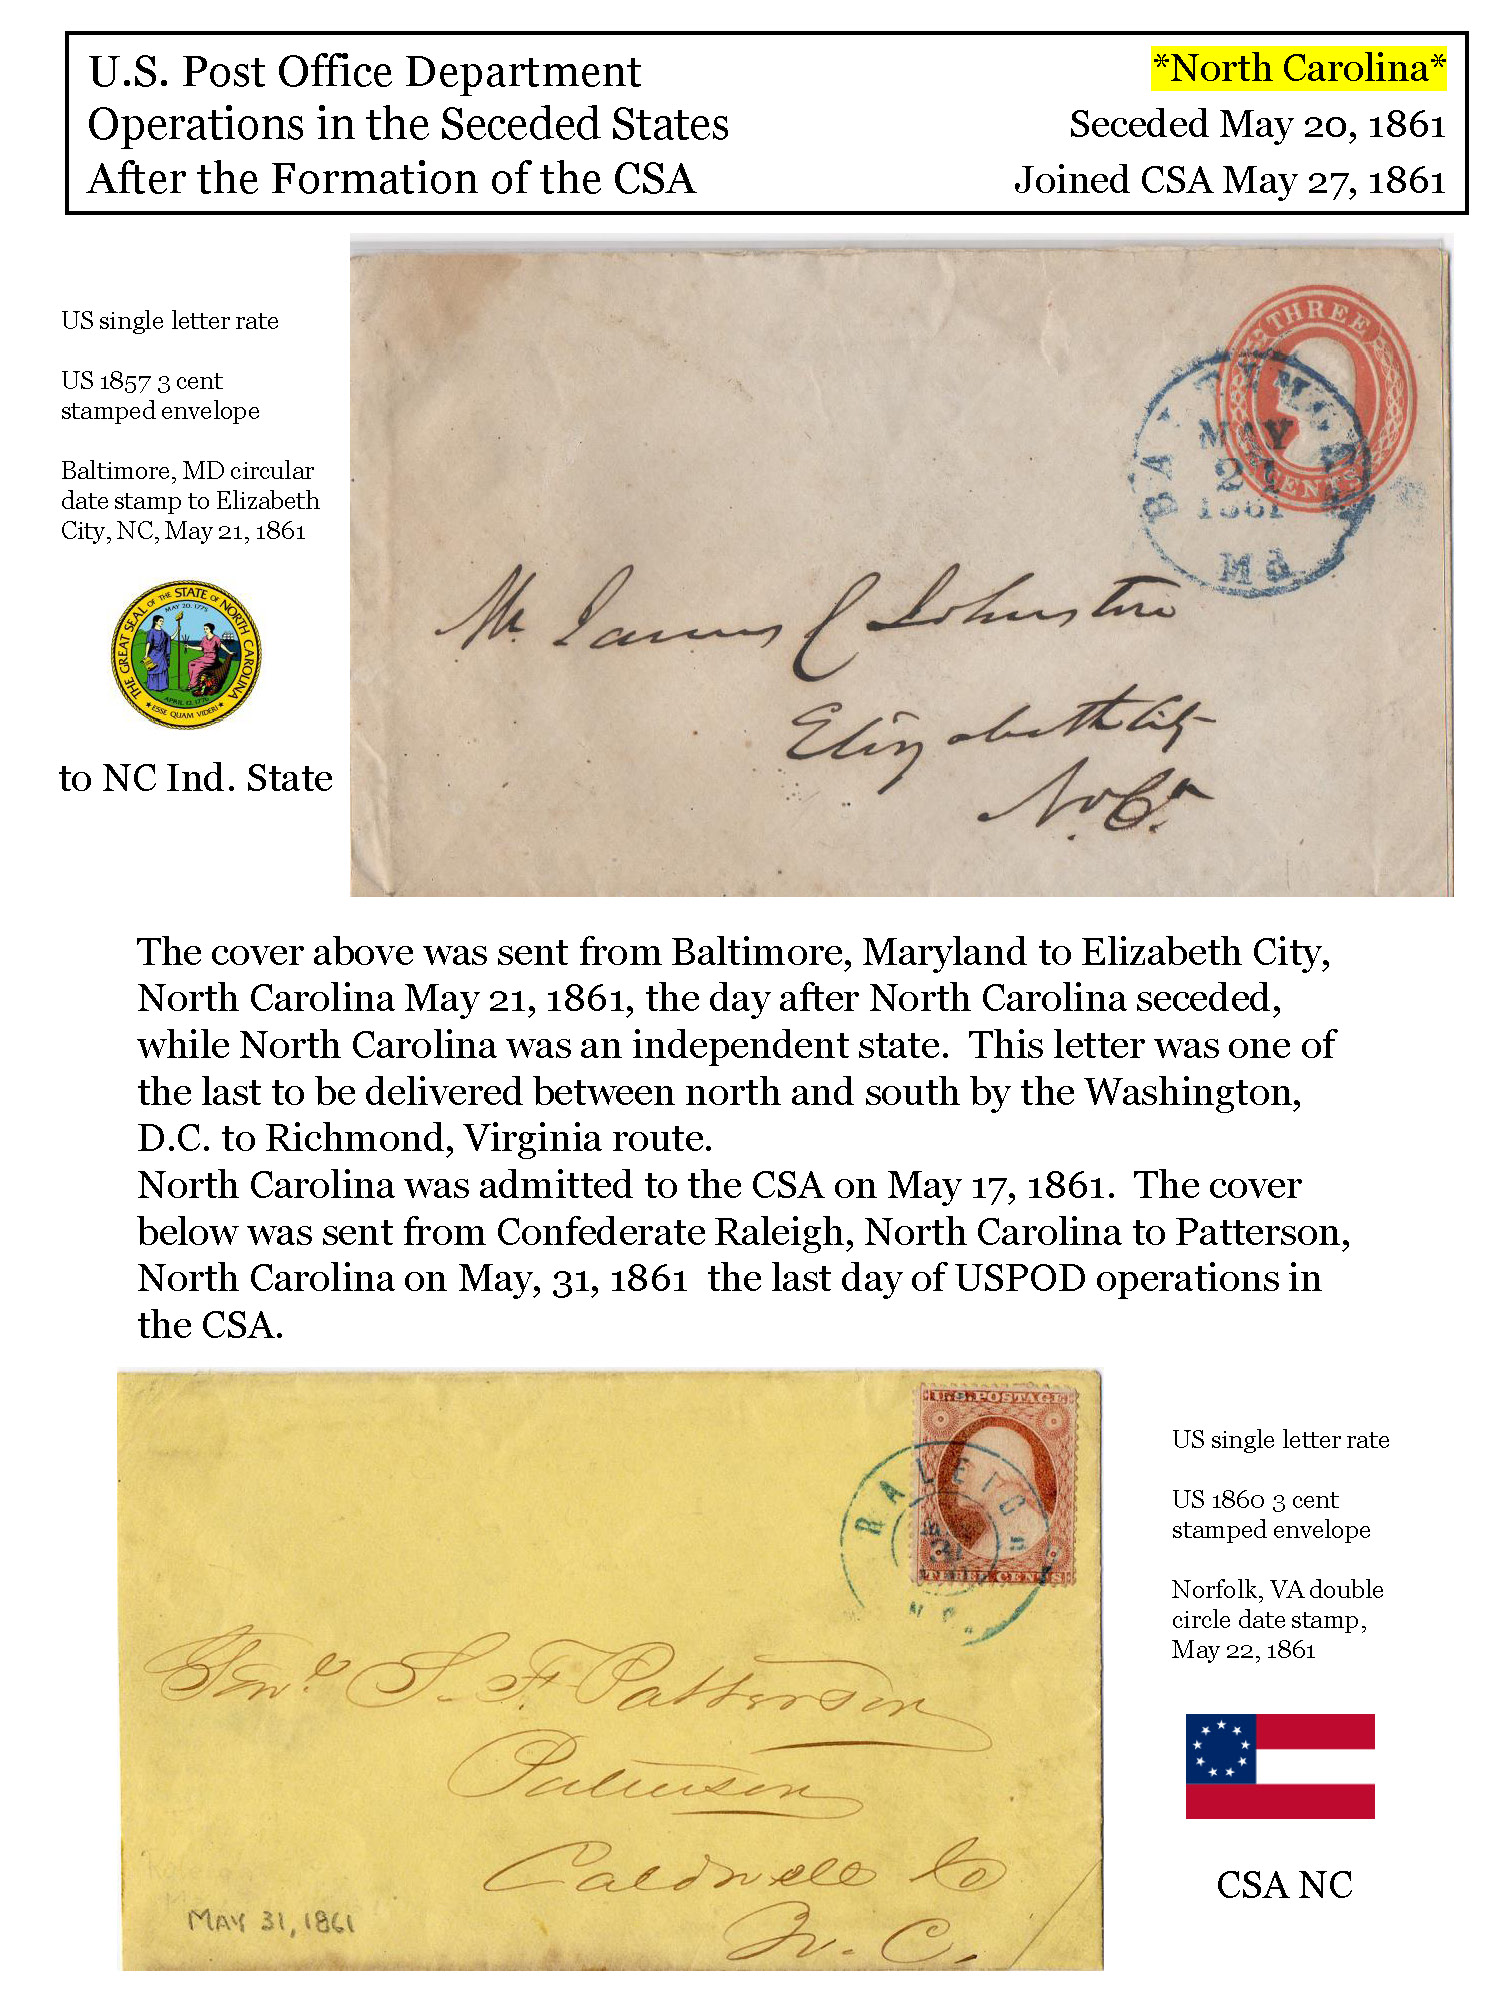 U.S. Post Office Department
Operations in the Seceded States
After the Formation of the CSA
*North Carolina*
Seceded May 20, 1861
Joined CSA May 27, 1861
US single letter rate
US 1857 3 cent
stamped envelope
Baltimore, MD circular
date stamp to Elizabeth
City, NC, May 21, 1861
THE GREAT SEAL OF THE STATE OF NORTH CAROLINA
MAY 20, 1775
APRIL 12, 1776
★ ESSE QUAM VIDERI ★
to NC Ind. State
THREE
CENTS
BALTIMORE
MAY
21
1861
Md
Mr. James C Johnston
Elizabeth City
No. Ca.
The cover above was sent from Baltimore, Maryland to Elizabeth City,
North Carolina May 21, 1861, the day after North Carolina seceded,
while North Carolina was an independent state.  This letter was one of
the last to be delivered between north and south by the Washington,
D.C. to Richmond, Virginia route.
North Carolina was admitted to the CSA on May 17, 1861.  The cover
below was sent from Confederate Raleigh, North Carolina to Patterson,
North Carolina on May, 31, 1861  the last day of USPOD operations in
the CSA.
U.S. POSTAGE
THREE CENTS
RALEIGH
MAY
31
N.C.
Genl. S. F. Patterson
Patterson
Caldwell Co
N. C.
MAY 31, 1861
US single letter rate
US 1860 3 cent
stamped envelope
Norfolk, VA double
circle date stamp,
May 22, 1861
CSA NC